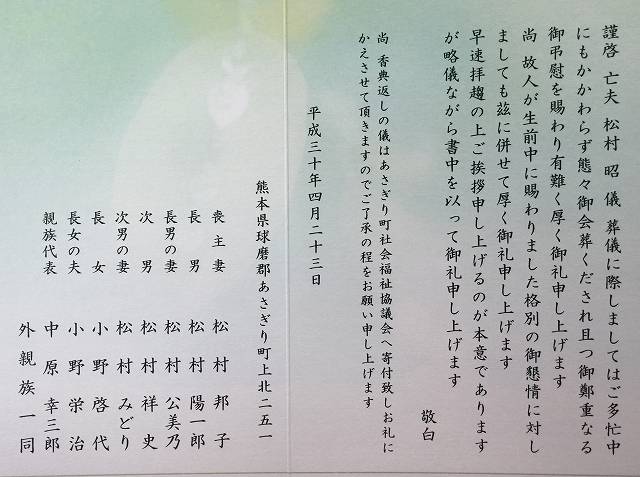 謹啓 亡夫 松村 昭 儀 葬儀に際しましてはご多忙中
にもかかわらず態々御会葬くだされ且つ御鄭重なる
御弔慰を賜わり有難く厚く御礼申し上げます
尚 故人が生前中に賜わりました格別の御懇情に対し
ましても茲に併せて厚く御礼申し上げます
早速拝趨の上ご挨拶申し上げるのが本意であります
が略儀ながら書中を以って御礼申し上げます
敬白
尚 香典返しの儀はあさぎり町社会福祉協議会へ寄付致しお礼に
かえさせて頂きますのでご了承の程をお願い申し上げます
平成三十年四月二十三日
熊本県球磨郡あさぎり町上北二五一
喪主妻 松村邦子
長男 松村陽一郎
長男の妻 松村公美乃
次男 松村祥史
次男の妻 松村みどり
長女 小野啓代
長女の夫 小野栄治
親族代表 中原幸三郎
外親族一同